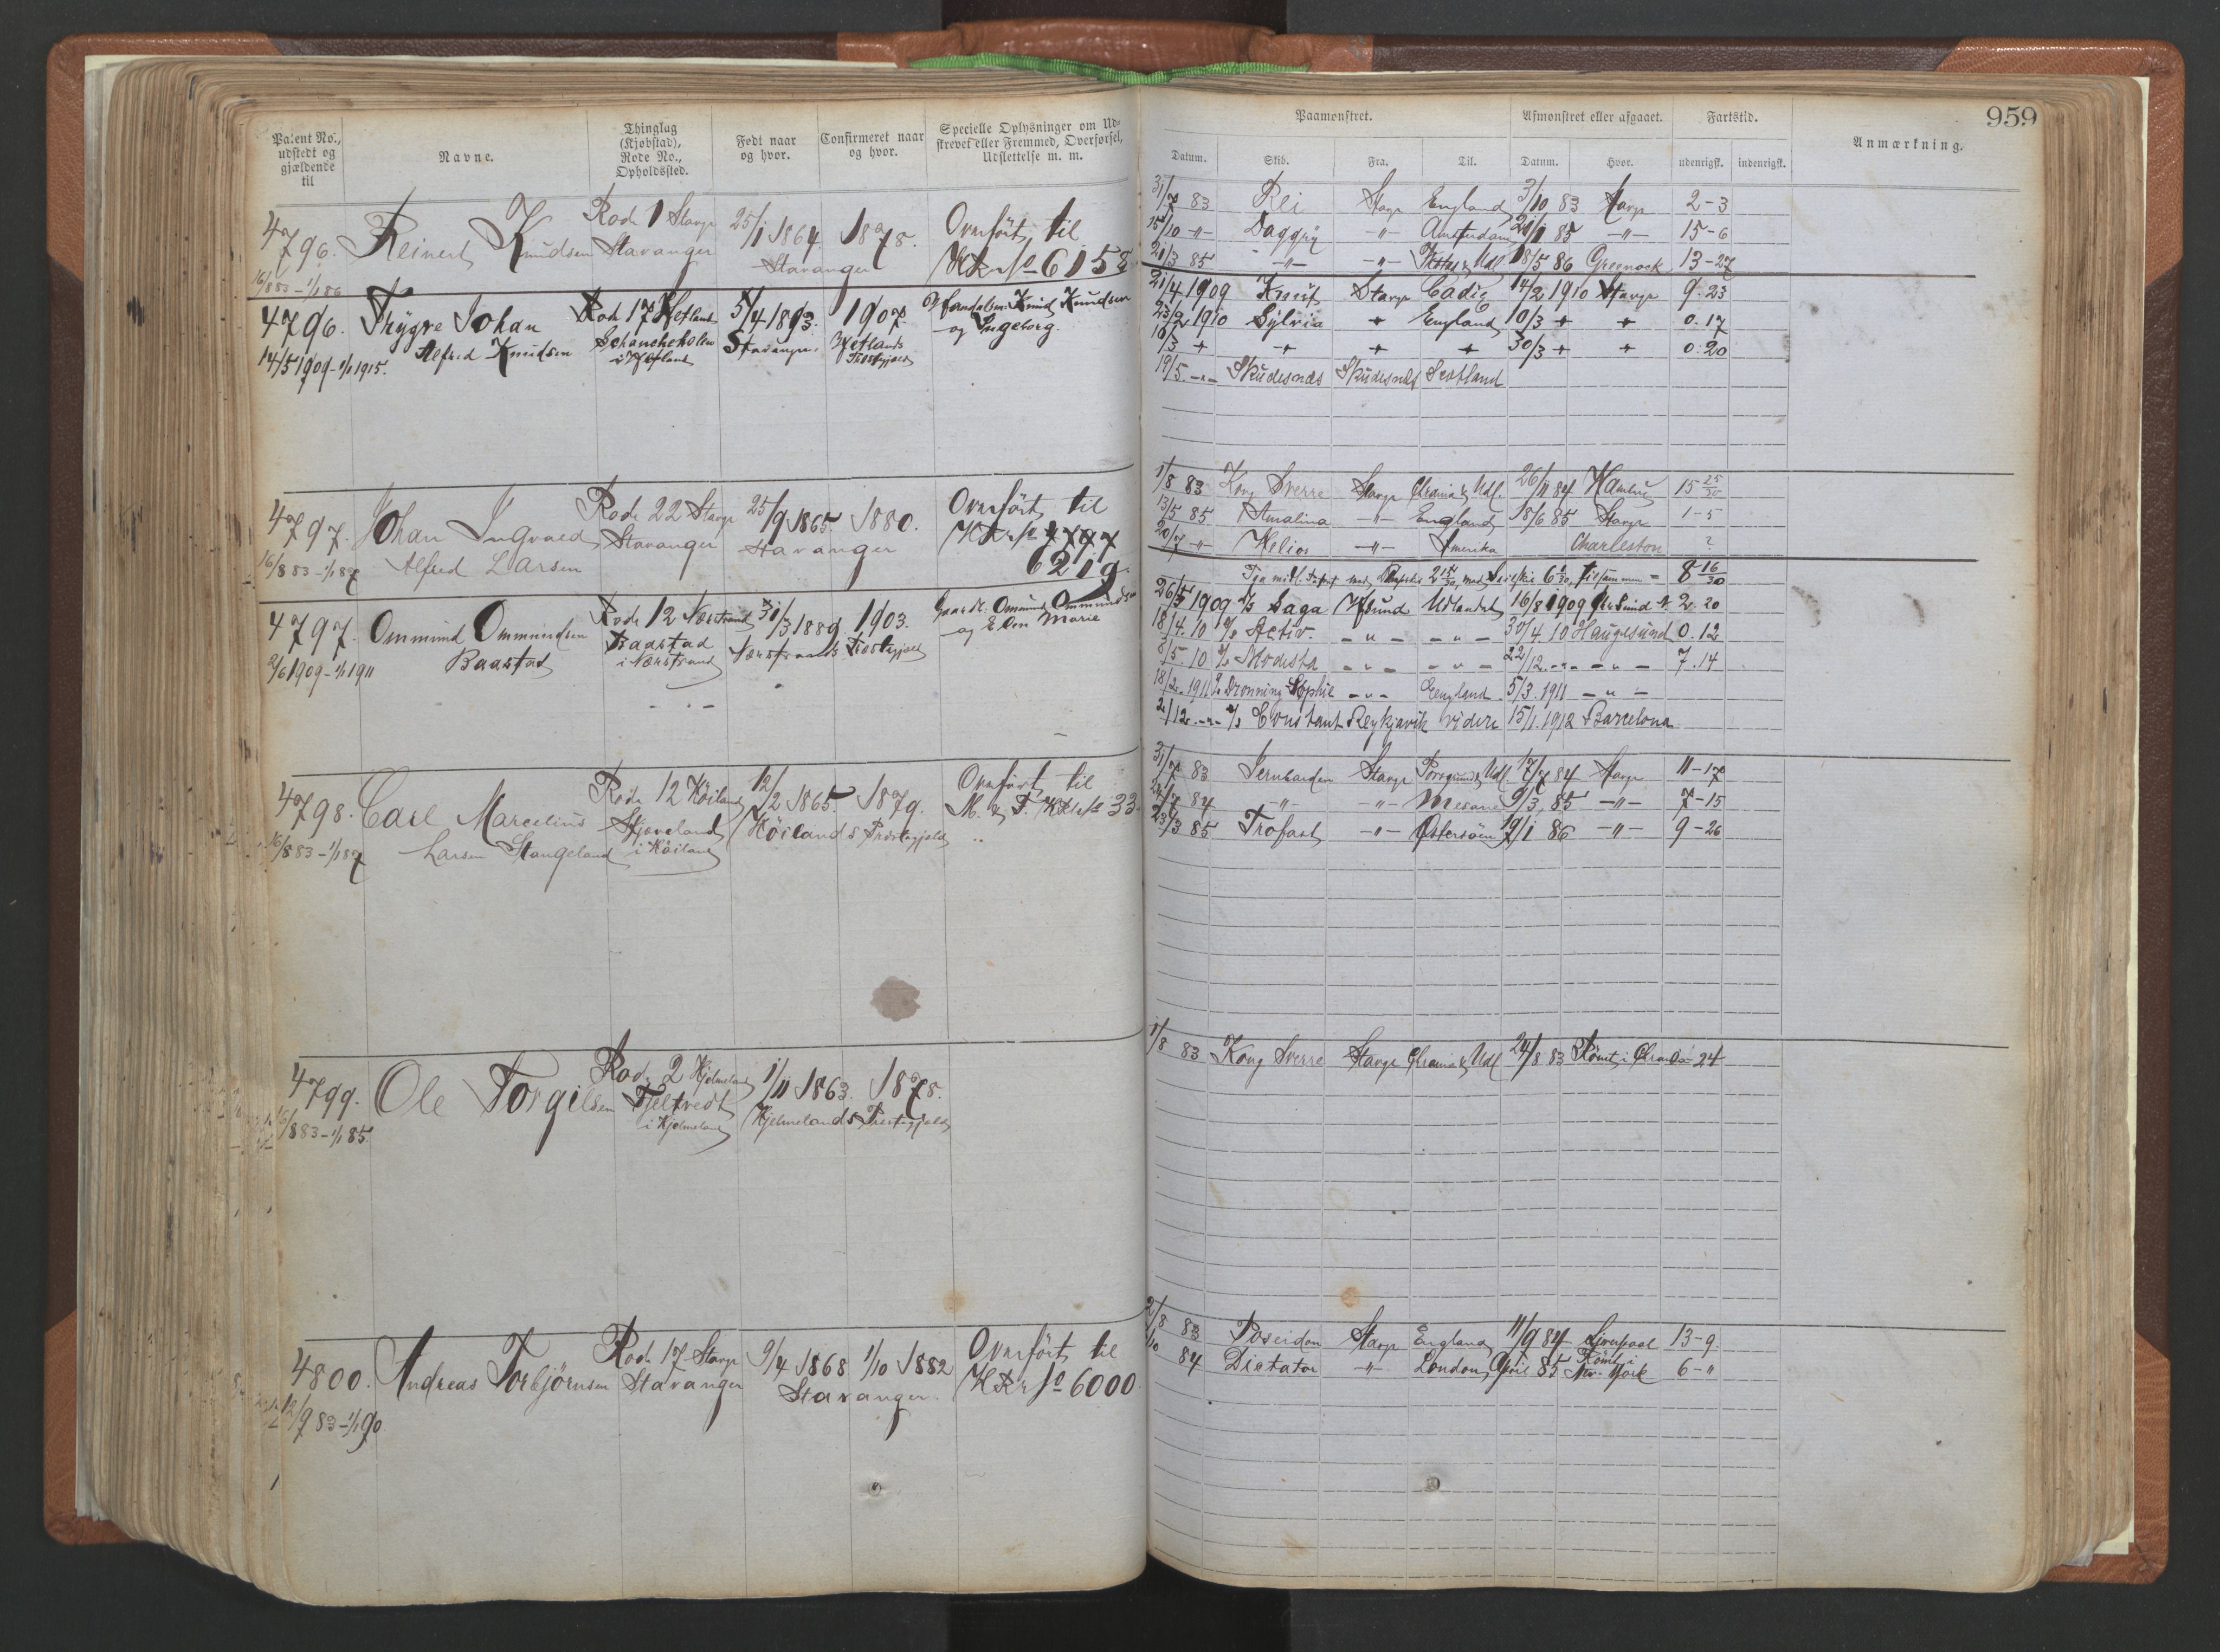 959
Patent No., udstedt og gjældende til
Navne.
Thinglag (Kjøbstad), Rode No., Opholdssted.
Født naar og hvor.
Confirmeret naar og hvor.
Specielle Oplysninger om Udskrevet eller Fremmed, Overførsel, Udslettelse m. m.
Paamønstret.
Afmønstret eller afgaaet.
Fartstid.
Anmærkning.
Datum. Skib. Fra. Til. Datum. Hvor. udenrigsk. indenrigsk.
4796. Reinert Knudsen Rode 1 Stavgr 25/1 1864 1878. Overført til
Stavanger Stavanger HRr No 6158
16/8 83 - 1/1 86
31/7 83 Rei Stavgr England 3/10 83 Stavgr 2-3
15/10 -"- Daggry -"- Amsterdam 21/1 85 -"- 15-6
21/3 85 -"- -"- Udl 18/5 86 Greenock 13-27
4796. Trygve Johan Rode 17 Hetland 5/4 1893. 1907. Knud Knudsen
Alfred Knudsen Schancheholen Stavanger. Hetlands og Ingeborg.
14/5 1909 - 1/1 1915. i Hetland Prestegjeld
21/4 1909 Knut Stavgr Cadiz 14/2 1910 Stavgr 9.23
23/2 1910 Sylvia + England 10/3 + + 0.17
10/3 + + + + 30/3 + + 0.20
19/5 -"- Skudesnæs Skudesnæs Scotland
4797. Johan Ingvald Rode 22 Stavgr 25/9 1865. 1880. Overført til
Alfred Larsen Stavanger Stavanger HRr No 4797
16/8 83 - 1/1 87 6219.
1/8 83 Kong Sverre Stavgr Chrania & Udl. 26/11 84 Hambrg 15 25/30
13/5 85 Amalina -"- England 18/6 85 Stavgr 1-5
20/7 -"- Helios -"- Amerika Charleston ?
4797. Ommund Ommundsen Rode 12 Nærstrand 31/3 1889. 1903. Omund Ommundsen
Baastad Baastad Nærstrands Prestegjeld og Ellen Marie
2/6 1909 - 1/1 1911 i Nærstrand
tilsammen = 8 16/30
26/5 1909 Saga Hsund Udlandet 16/8 1909 2.20
18/4. 10 Activ. -"- -"- 30/4 10 Haugesund 0.12
8/5. 10 Modesta -"- -"- 22/12 -"- -"- 7.14
18/2. 1911 Dronning Sophie -"- England 5/3. 1911 -"-
2/12. -"- Constant Reykjavik videre 15/1. 1912 Barcelona
4798. Carl Marcelius Rode 12 Höiland 12/2 1865. 1879. Overført til
Larsen Stangeland Skjæveland Höilands Prestegjeld M. & F. HRr No 33
16/8 83 - 1/1 87 i Höiland
31/7 83 Jernbarden Stavgr Porsgrund & Udl. 17/7 84 Stavgr 11-17
24/7 84 -"- -"- 9/3 85 -"- 7-15
23/3 85 Trofast -"- Østersöen 19/1 86 -"- 9-26
4799. Ole Torgilsen Rode 2 Hjelmeland 1/11 1863. 1878.
16/8 83 - 1/1 85. i Hjelmeland Hjelmelands Prestegjeld
1/8 83 Kong Sverre Stavgr Chrania & Udl 24/8 83 Römt i Chrania - 24
4800. Andreas Torbjörnsen Rode 17 Stavgr 9/4 1868 1/10 1882 Overført til
12/9 83 - 1/1 90 Stavanger Stavanger. HRr No 6000
2/8 83 Poseidon Stavgr England 11/9 84 Liverpool 13-9.
/10 84 Dictator -"- London April 85 Römt i New York 6-"